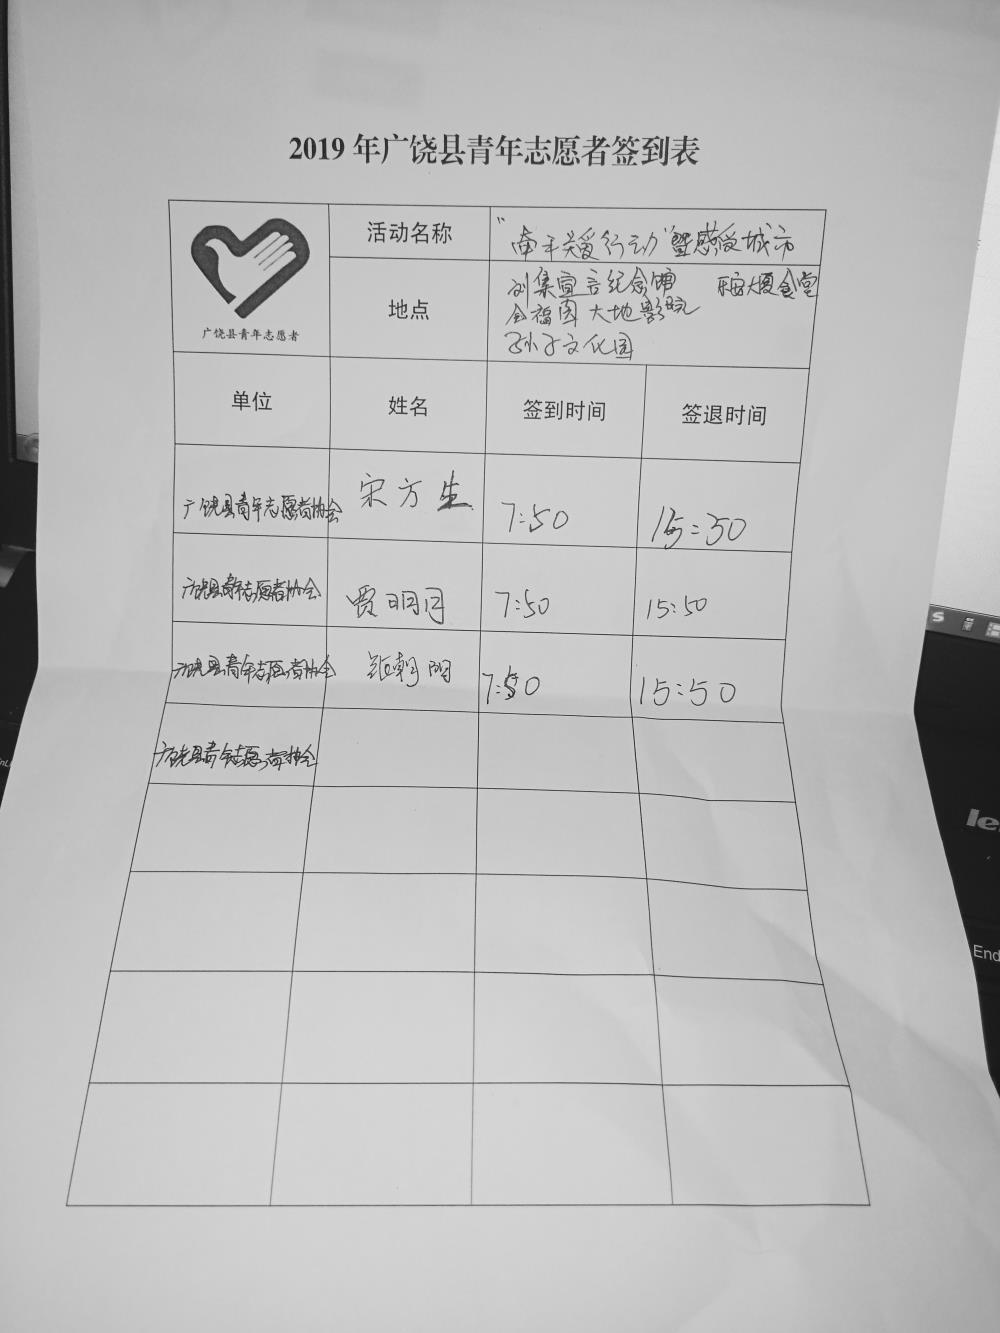 2019年广饶县青年志愿者签到表
活动名称
"牵手关爱行动"暨感受城市
地点
刘集宣言纪念馆 乐安大厦食堂
全福园 大地影院
孙子文化园
广饶县青年志愿者
单位 姓名 签到时间 签退时间
广饶县青年志愿者协会 宋方生 7:50 15:50
广饶县青年志愿者协会 贾明月 7:50 15:50
广饶县青年志愿者协会 朝明 7:50 15:50
广饶县青年志愿者协会
End